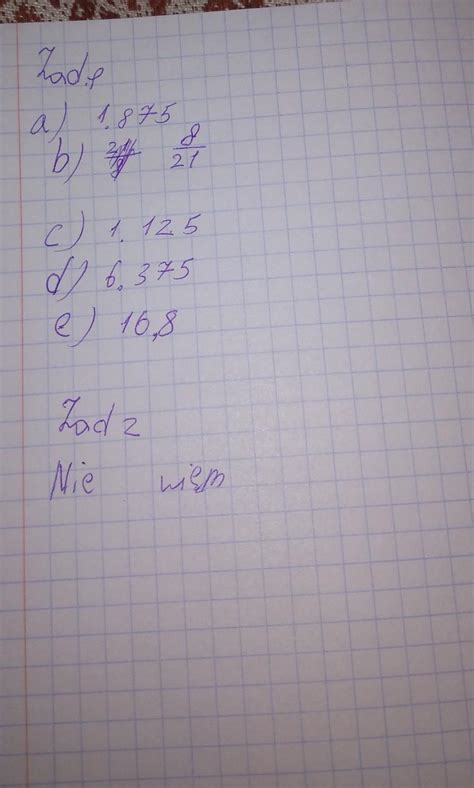 Zad.1
a) 1.875
b) 8/21
c) 1.125
d) 6.375
e) 16,8
Zad 2
Nie wiem